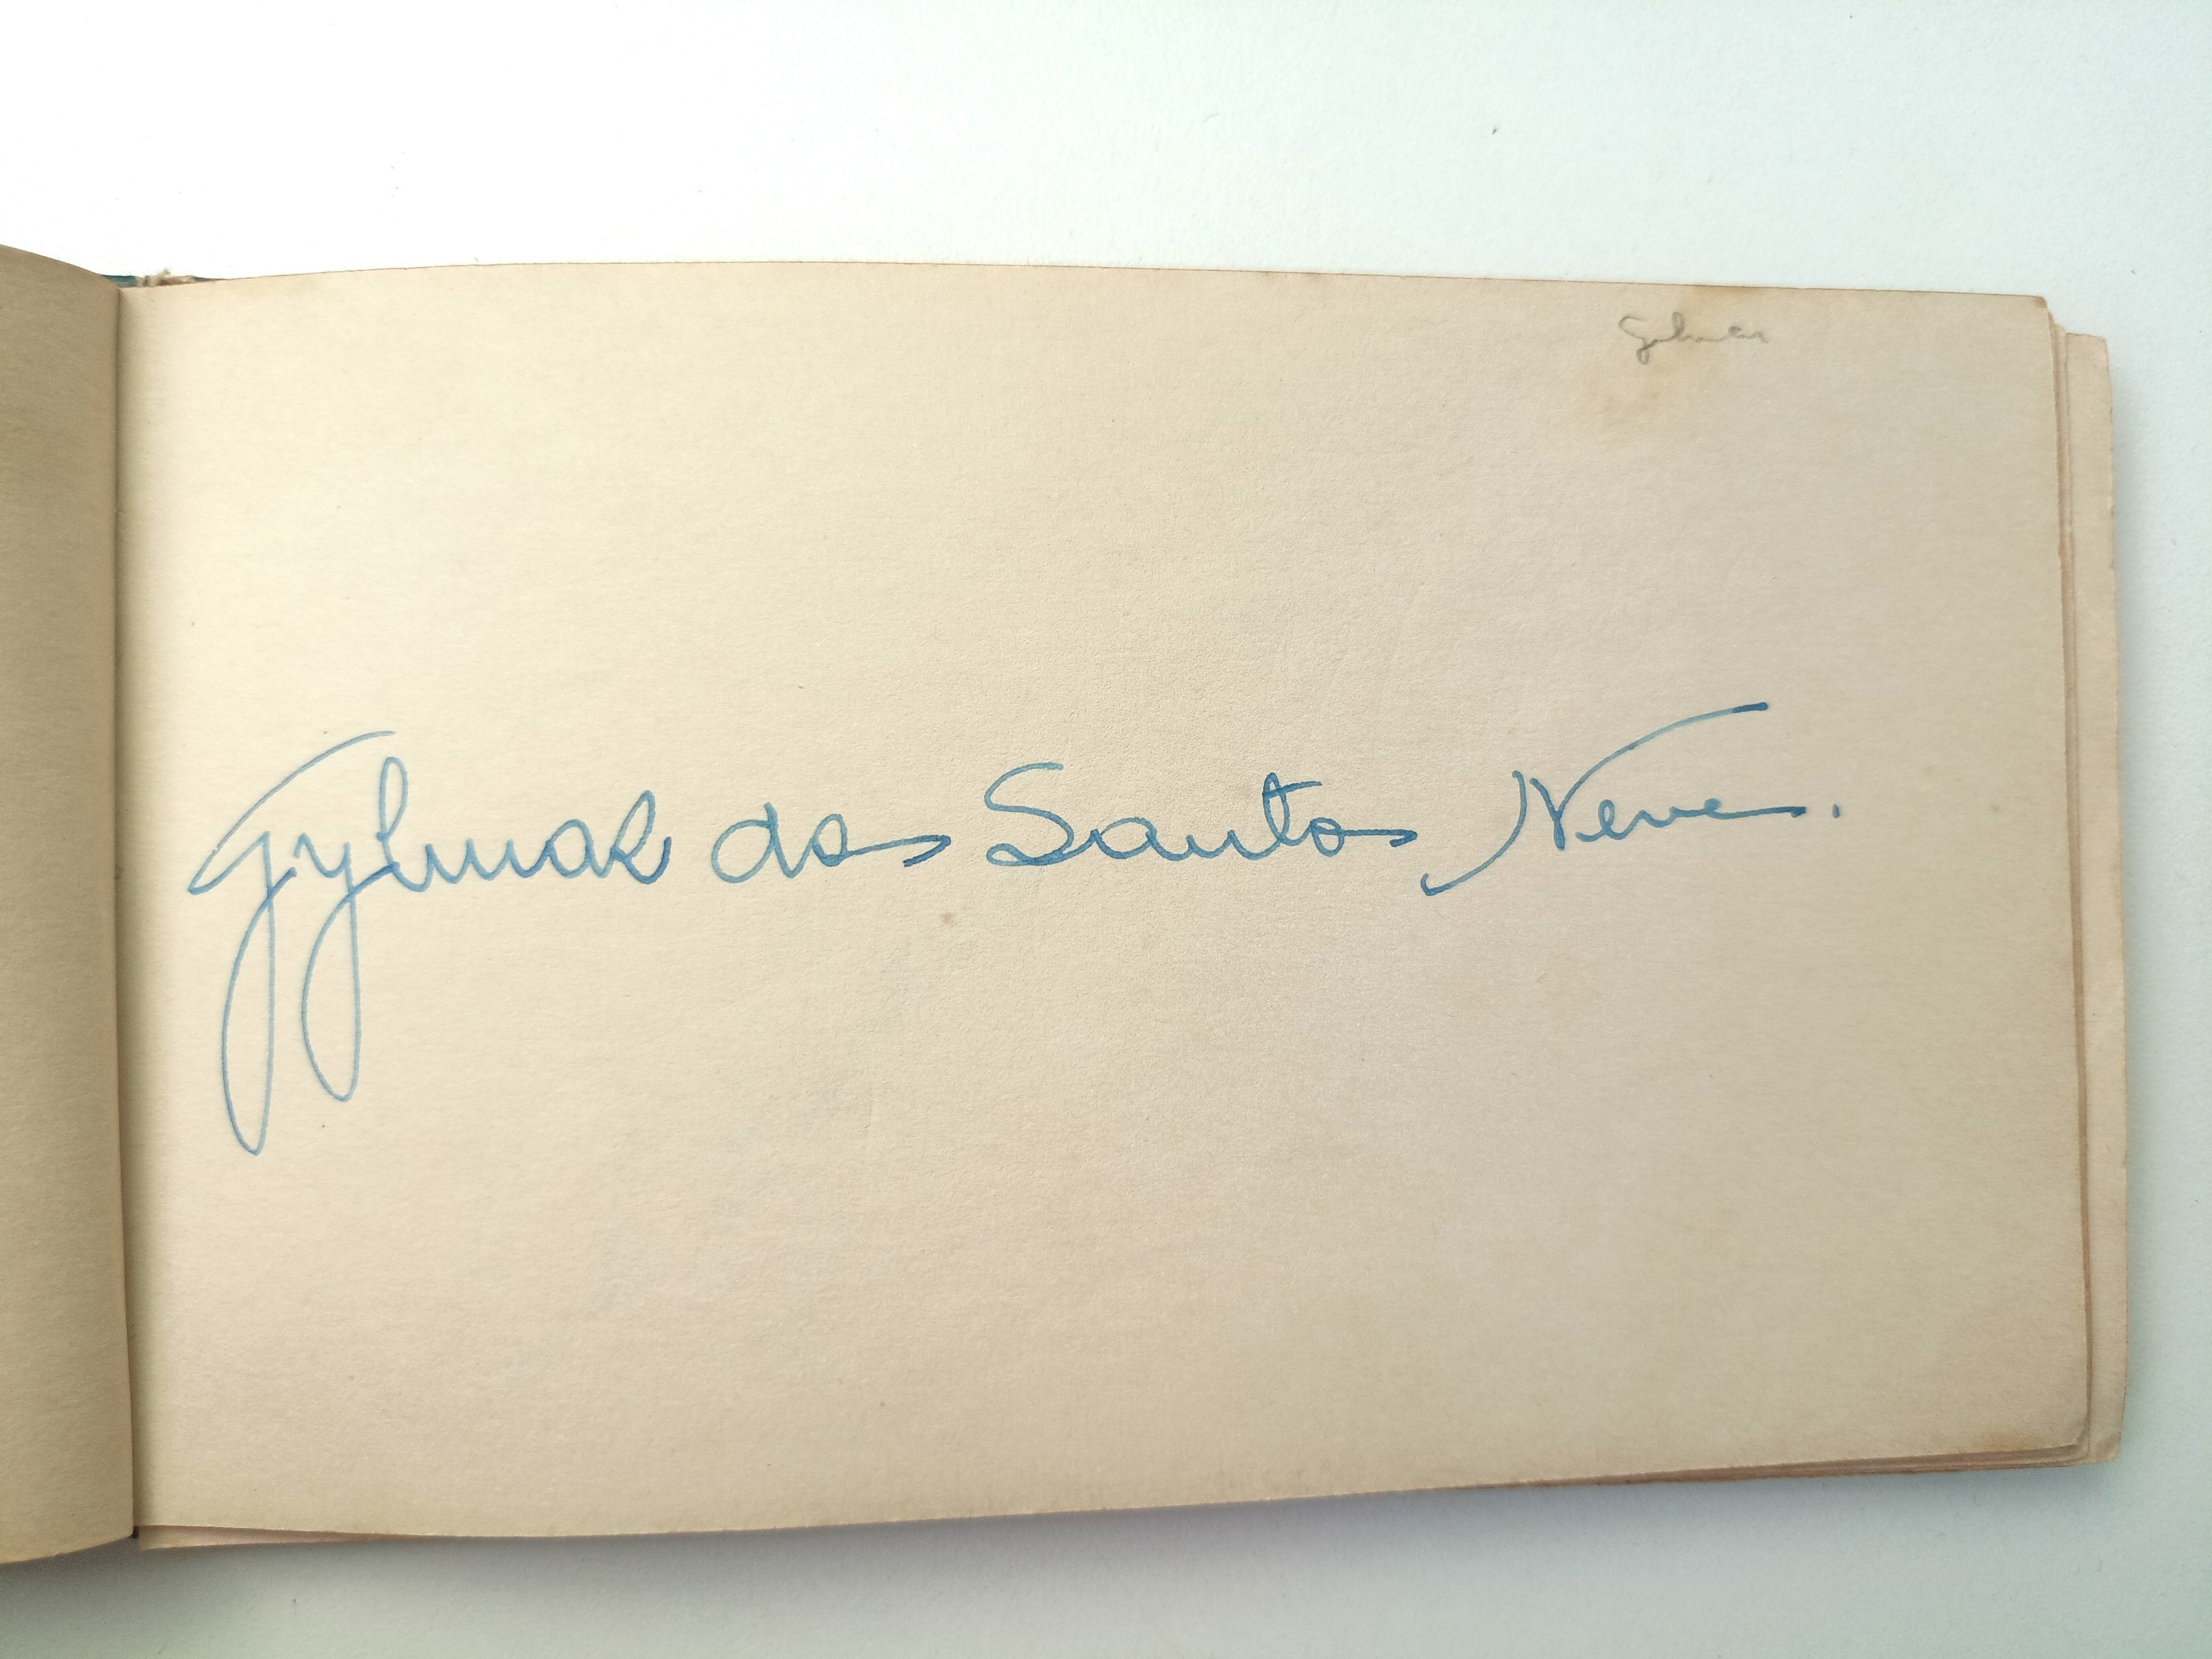 Gylmar
Gylmar dos Santos Neves.